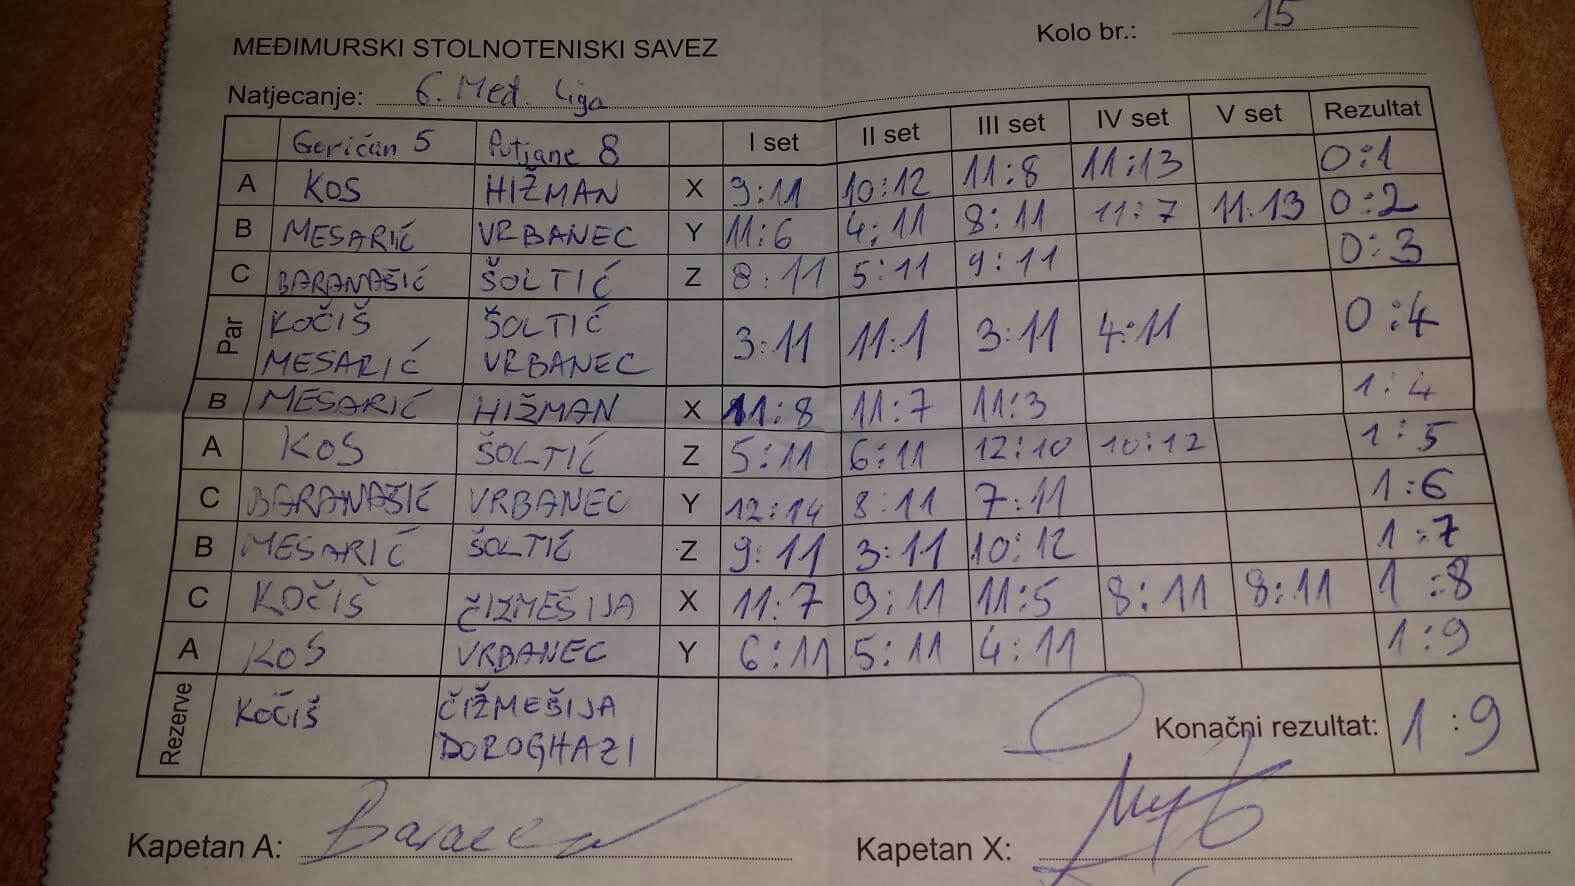 Kolo br.: 15
MEĐIMURSKI STOLNOTENISKI SAVEZ
Natjecanje: 6. Međ. Liga
Goričan 5 Putjane 8 I set II set III set IV set V set Rezultat
A KOS HIŽMAN X 9:11 10:12 11:8 11:13 0:1
B MESARIĆ VRBANEC Y 11:6 4:11 8:11 11:7 11.13 0:2
C BARANAŠIĆ ŠOLTIĆ Z 8:11 5:11 9:11 0:3
Par KOČIŠ ŠOLTIĆ 3:11 11:1 3:11 4:11 0:4
MESARIĆ VRBANEC
B MESARIĆ HIŽMAN X 11:8 11:7 11:3 1:4
A KOS ŠOLTIĆ Z 5:11 6:11 12:10 10:12 1:5
C BARANAŠIĆ VRBANEC Y 12:14 8:11 7:11 1:6
B MESARIĆ ŠOLTIĆ Z 9:11 3:11 10:12 1:7
C KOČIŠ ČIZMEŠIJA X 11:7 9:11 11:5 8:11 8:11 1:8
A KOS VRBANEC Y 6:11 5:11 4:11 1:9
Rezerve KOČIŠ ČIŽMEŠIJA
DOROGHAZI
Konačni rezultat: 1:9
Kapetan A: Kapetan X: